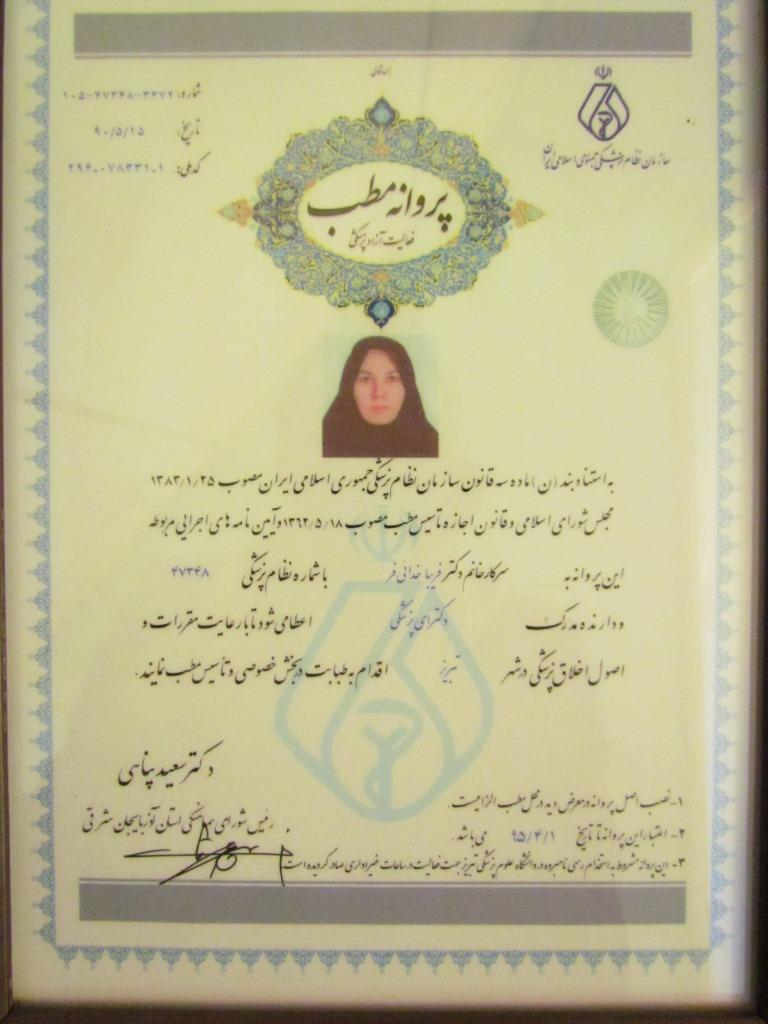 بسمه تعالی
سازمان نظام پزشکی جمهوری اسلامی ایران
شماره: ۱۰۵-۴۷۳۴۸-۳۴۷۲
تاریخ: ۹۰/۵/۱۵
کدملی: ۲۹۴-۰۷۸۳۳۱-۱
پروانه مطب
فعالیت آزاد پزشکی
به استناد بند (ن) ماده سه قانون سازمان نظام پزشکی جمهوری اسلامی ایران مصوب ۱۳۸۳/۱/۲۵
مجلس شورای اسلامی و قانون اجازه تاسیس مطب مصوب ۱۳۶۲/۵/۱۸ و آیین نامه های اجرایی مربوطه
این پروانه به سرکار خانم دکتر فریبا خدائی فر با شماره نظام پزشکی ۴۷۳۴۸
و دارنده مدرک دکترای پزشکی اعطا می شود تا با رعایت مقررات و
اصول اخلاق پزشکی در شهر تبریز اقدام به طبابت در بخش خصوصی و تأسیس مطب نمایند.
دکتر سعید پناهی
رئیس شورای هماهنگی استان آذربایجان شرقی
۱- نصب اصل پروانه در معرض دید در محل مطب الزامیست.
۲- اعتبار این پروانه تا تاریخ ۹۵/۴/۱ می باشد.
۳- این پروانه مشروط به استخدام رسمی نامبرده در دانشگاه علوم پزشکی تبریز جهت فعالیت در ساعات غیر اداری صادر گردیده است